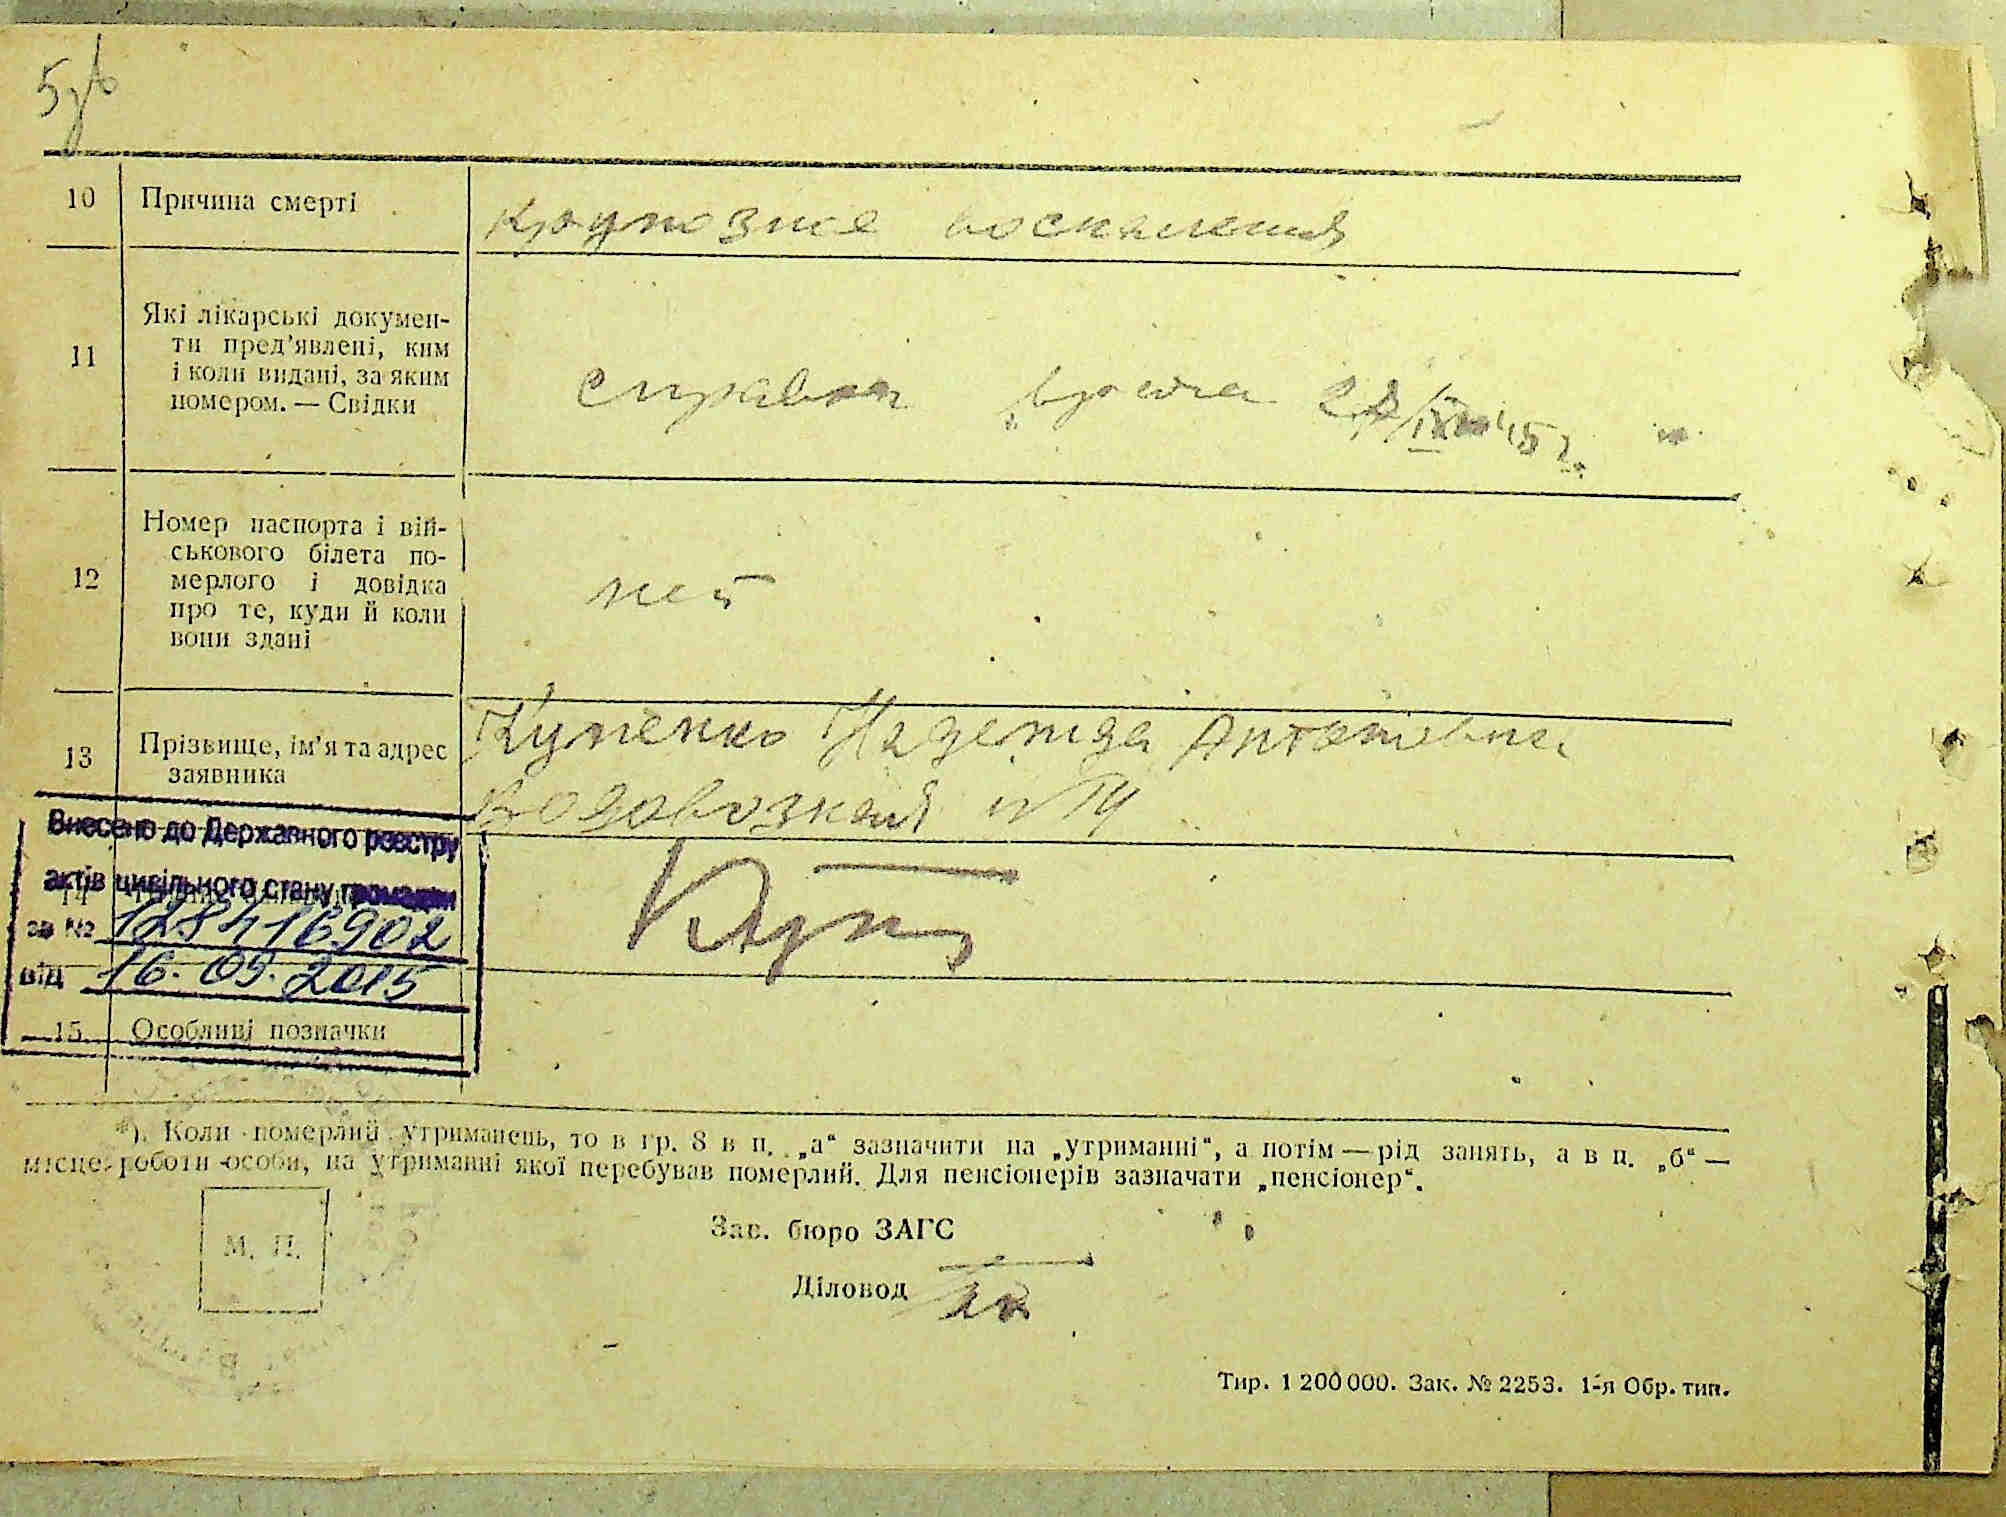 10 Причина смерті Крупозное воспаление
11 Які лікарські докумен-
ти пред'явлені, ким
і коли видані, за яким
номером. — Свідки
справка врача
12 Номер паспорта і вій-
ськового білета по-
мерлого і довідка
про те, куди й коли
вони здані
нет
13 Прізвище, ім'я та адрес
заявника
Купенко Надежда Антоновна
Водовозная № 14
Внесено до Державного реєстру
актів цивільного стану громадян
за № 128416902
від 16.09.2015
15 Особливі позначки
*). Коли померлий утриманець, то в гр. 8 в п. „а“ зазначити на „утриманні“, а потім — рід занять, а в п. „б“ —
місце роботи особи, на утриманні якої перебував померлий. Для пенсіонерів зазначати „пенсіонер“.
М. П.
Зав. бюро ЗАГС
Діловод
Тир. 1 200 000. Зак. № 2253. 1-я Обр. тип.